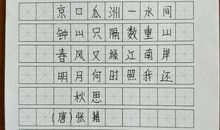 京口瓜洲一水间
钟山只隔数重山
春风又绿江南岸
明月何时照我还
秋思
(唐)张籍